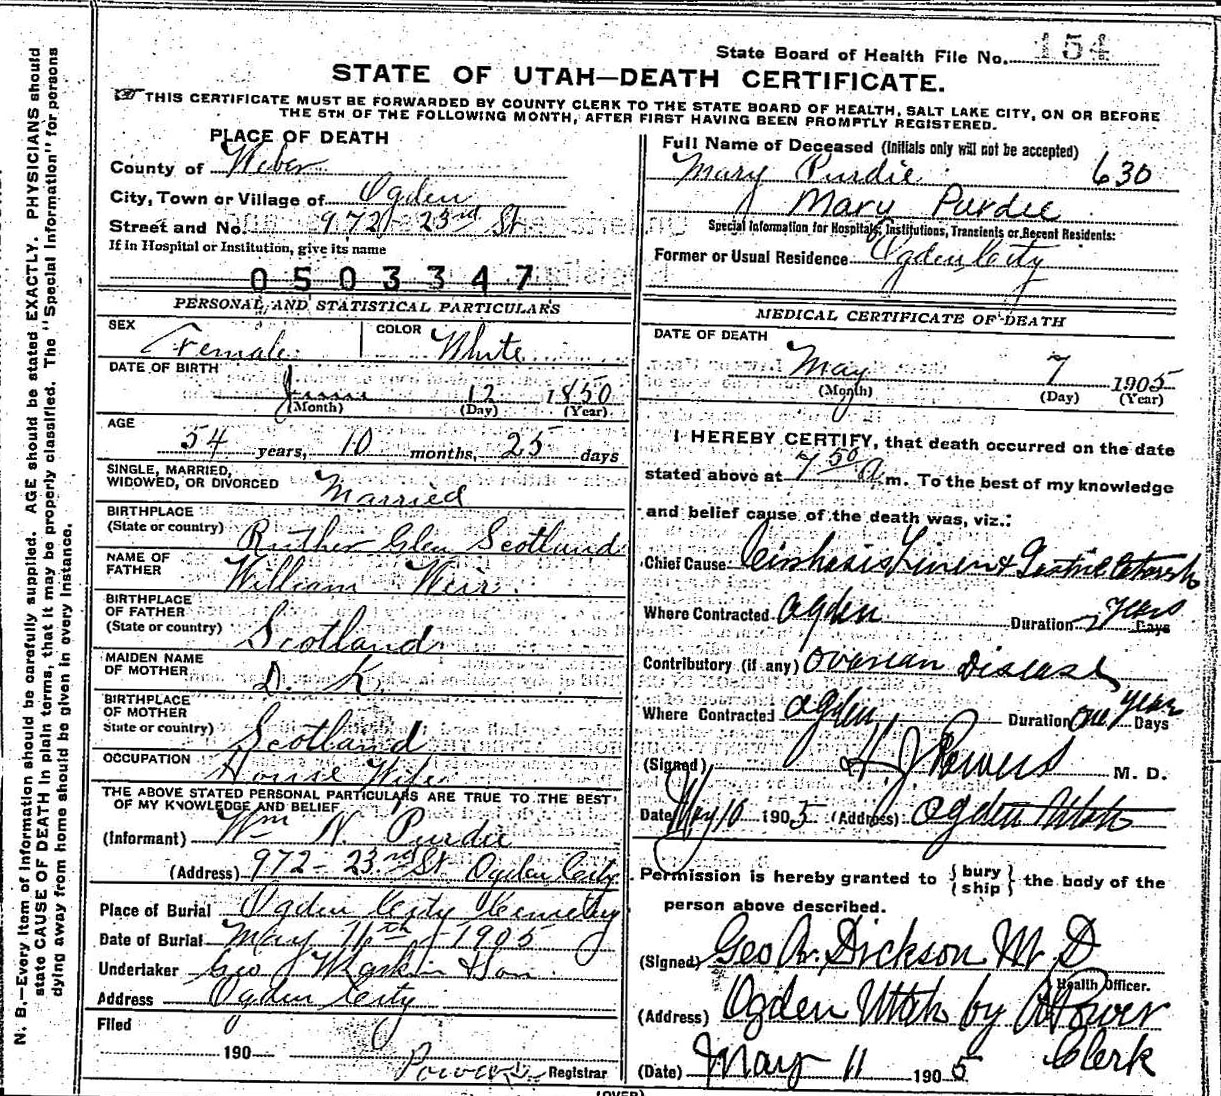 State Board of Health File No. 154
STATE OF UTAH—DEATH CERTIFICATE.
THIS CERTIFICATE MUST BE FORWARDED BY COUNTY CLERK TO THE STATE BOARD OF HEALTH, SALT LAKE CITY, ON OR BEFORE
THE 5TH OF THE FOLLOWING MONTH, AFTER FIRST HAVING BEEN PROMPTLY REGISTERED.
PLACE OF DEATH
County of Weber
City, Town or Village of Ogden
Street and No. 972 23rd St
If in Hospital or Institution, give its name
0503347
PERSONAL AND STATISTICAL PARTICULARS
SEX Female COLOR White
DATE OF BIRTH
June 12 1850
(Month) (Day) (Year)
AGE
54 years, 10 months, 25 days
SINGLE, MARRIED,
WIDOWED, OR DIVORCED Married
BIRTHPLACE
(State or country) Ruther Glen Scotland
NAME OF
FATHER William Weir
BIRTHPLACE
OF FATHER
(State or country) Scotland
MAIDEN NAME
OF MOTHER D. K.
BIRTHPLACE
OF MOTHER
State or country) Scotland
OCCUPATION House Wife
THE ABOVE STATED PERSONAL PARTICULARS ARE TRUE TO THE BEST
OF MY KNOWLEDGE AND BELIEF
(Informant) Wm N. Purdie
(Address) 972 - 23rd St. Ogden City
Place of Burial Ogden City Cemetery
Date of Burial May 11th 1905
Undertaker Geo J Son
Address Ogden City
Filed
190
Registrar
Full Name of Deceased (Initials only will not be accepted)
Mary Purdie 630
Mary Purdie
Special Information for Hospitals, Institutions, Transients or Recent Residents:
Former or Usual Residence Ogden City
MEDICAL CERTIFICATE OF DEATH
DATE OF DEATH
May 7 1905
(Month) (Day) (Year)
I HEREBY CERTIFY, that death occurred on the date
stated above at 7 50 a.m. To the best of my knowledge
and belief cause of the death was, viz.:
Chief Cause Gastric
Where Contracted Ogden Duration years Days
Contributory (if any) Ovarian Disease
Where Contracted Ogden Duration one year Days
(Signed) H. J Powers M. D.
Date May 10 1905 (Address) Ogden Utah
Permission is hereby granted to {bury
{ship} the body of the
person above described.
(Signed) Geo A. Dickson M. D
Health Officer.
(Address) Ogden Utah by
Clerk
(Date) May 11 1905
(OVER)
N. B.—Every item of information should be carefully supplied. AGE should be stated EXACTLY. PHYSICIANS should
state CAUSE OF DEATH in plain terms, that it may be properly classified. The "Special Information" for persons
dying away from home should be given in every instance.